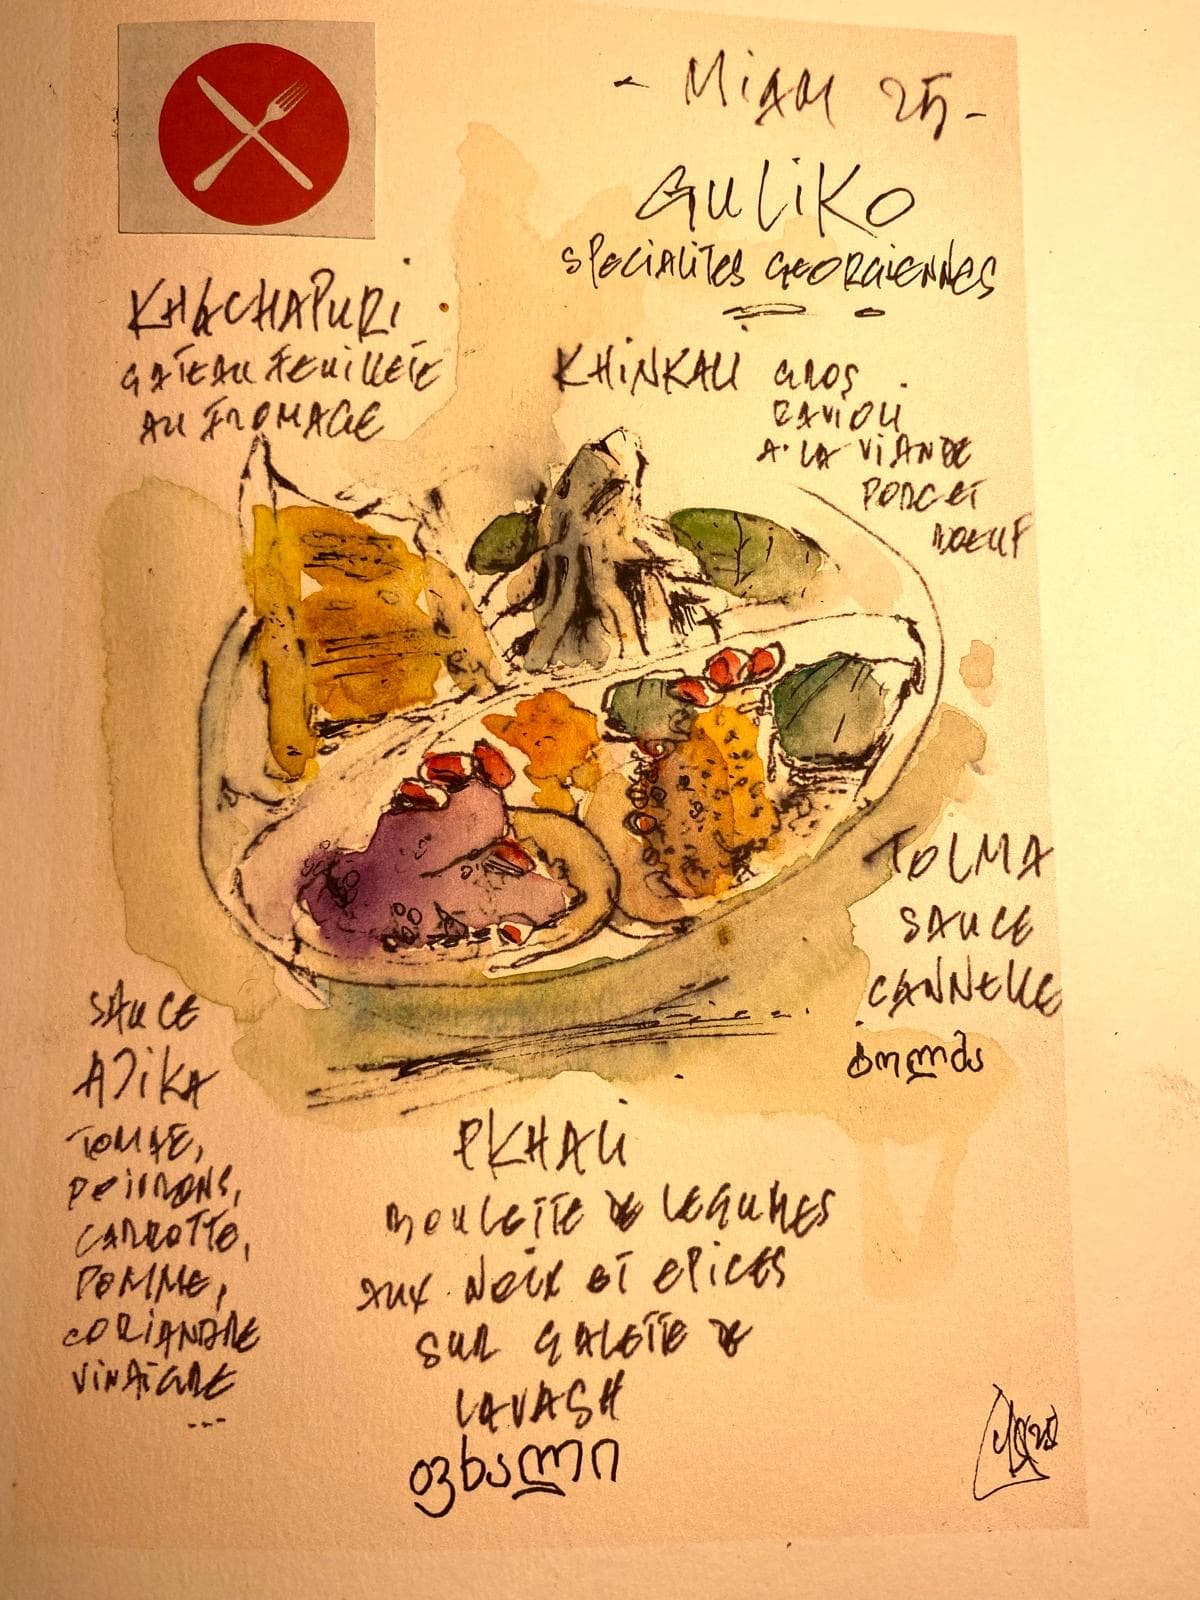 - MIAM 25 -
GULIKO
SPECIALITES GEORGIENNES
KHACHAPURI
GATEAU FEUILLETE
AU FROMAGE
KHINKALI GROS
RAVIOLI
A LA VIANDE
PORC ET
BOEUF
TOLMA
SAUCE
CANNELLE
ტოლმა
SAUCE
AJIKA
TOMATE,
POIVRONS,
CARROTTE,
POMME,
CORIANDRE
VINAIGRE
...
PKHALI
BOULETTE DE LEGUMES
AUX NOIX ET EPICES
SUR GALETTE DE
LAVASH
ფხალი